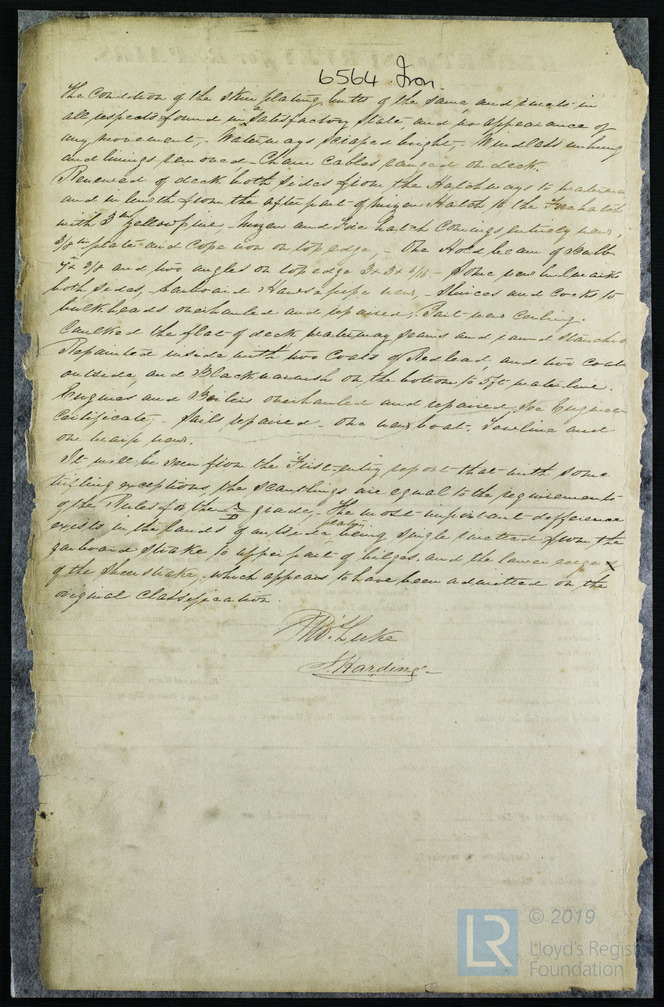 6564 Iron
The Condition of the Skin plating, butts of the same, and rivets in
all respects found in a Satisfactory State, and no appearance of
any movement, Waterways scraped bright. Windlass unhung
and linings removed. Chain Cables ranged on deck.
Renewed of deck both sides from the Hatchways to waterway
and in length from the after part of mizen Hatch to the Fore hatch
with 3 in yellow pine. Mizen and Fore hatch Comings entirely new,
plate and Cope iron on top edge, One Hold beam of Bulb
and two angles on top edge Some new bulwarks
both sides, Larboard Hawse pipe new, Sluices and Cocks to
bulkheads overhauled and repaired, Part new Ceiling.
Caulked the flat of deck waterway seams and round Stanchions
Repainted inside with two Coats of Red lead, and two Coats
outside, and Black varnish on the bottom to water line.
Engines and Boilers overhauled and repaired See Engineers
Certificate, Sails repaired. One new boat, Towline and
one warp new.
It will be seen from the First entry report that with some
trifling exceptions, the scantlings are equal to the requirements
of the Rules for the grade, The most important difference
exists in the lands of outside plating being single riveted from the
garboard strake to upper part of bilges, and the lower edge
of the Sheerstrake, which appears to have been admitted on the
original Classification.
Luke
J Harding
© 2019
LR
Lloyd's Regist
Foundation